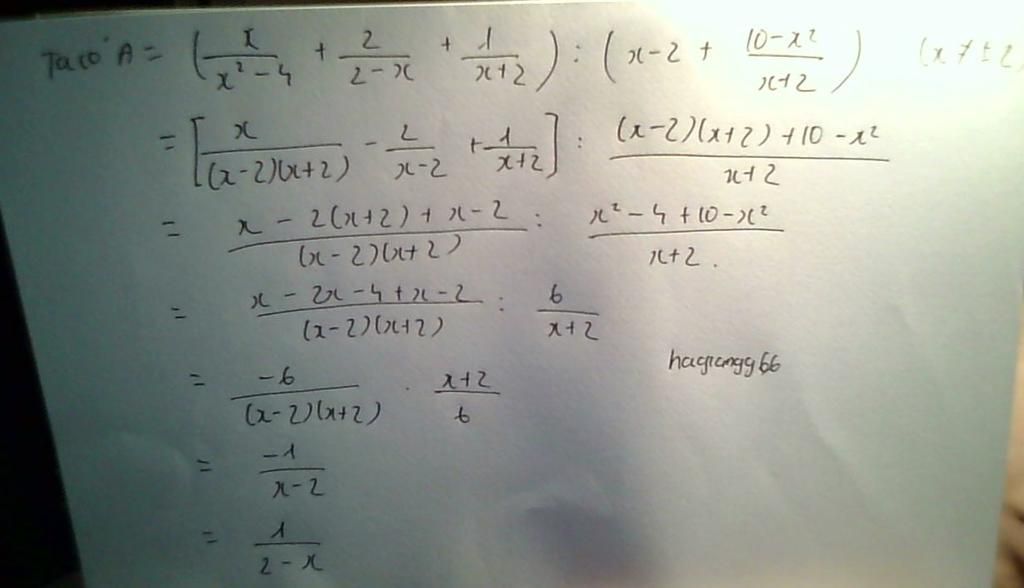 Ta có A = (x/(x² - 4) + 2/(2 - x) + 1/(x+2)) : (x - 2 + (10 - x²)/(x+2)) (x ≠ ± 2)
= [x/((x-2)(x+2)) - 2/(x-2) + 1/(x+2)] : ((x-2)(x+2) + 10 - x²)/(x+2)
= (x - 2(x+2) + x - 2)/((x-2)(x+2)) : (x² - 4 + 10 - x²)/(x+2).
= (x - 2x - 4 + x - 2)/((x-2)(x+2)) : 6/(x+2)
hagiangg66
= -6/((x-2)(x+2)) . (x+2)/6
= -1/(x-2)
= 1/(2-x)